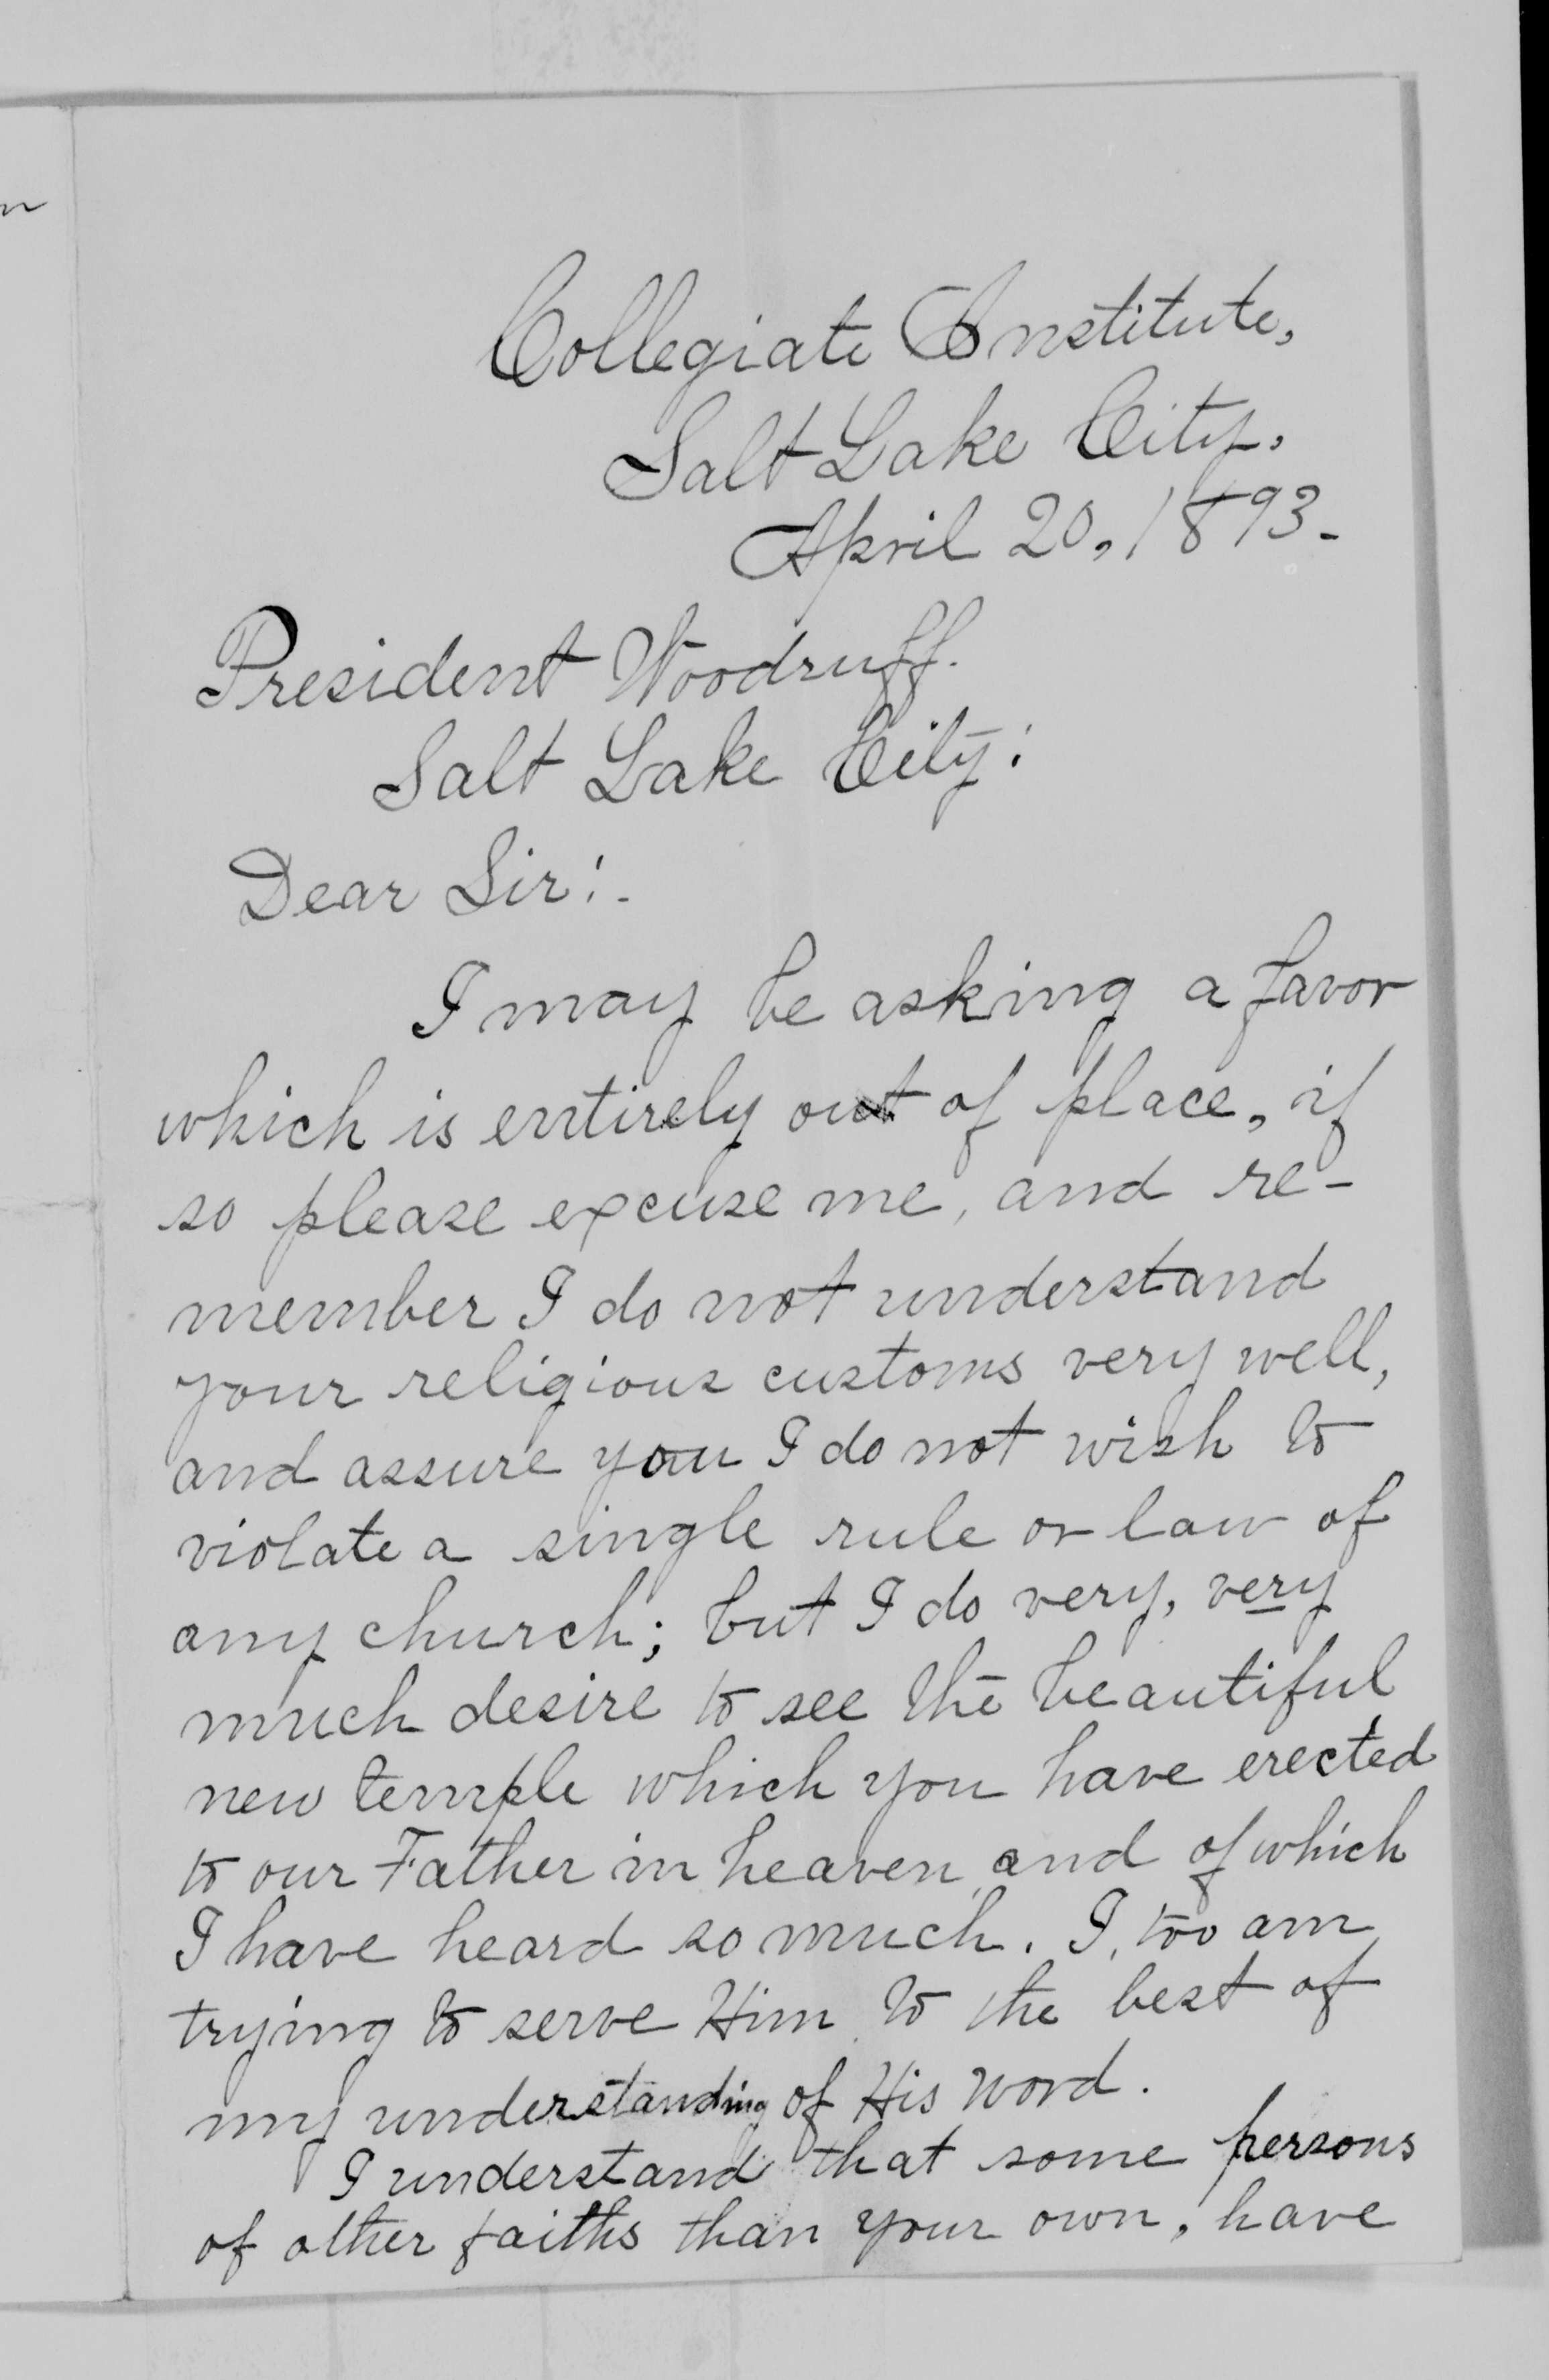 Collegiate Institute,
Salt Lake City,
April 20, 1893.
President Woodruff.
Salt Lake City:
Dear Sir:-
I may be asking a favor
which is entirely out of place, if
so please excuse me, and re-
member I do not understand
your religious customs very well,
and assure you I do not wish to
violate a single rule or law of
any church; but I do very, very
much desire to see the beautiful
new temple which you have erected
to our Father in heaven, and of which
I have heard so much. I, too am
trying to serve Him to the best of
my understanding of His word.
I understand that some persons
of other faiths than your own, have